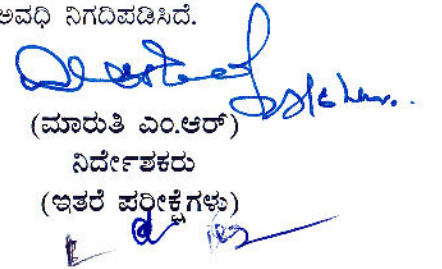 ಅವಧಿ ನಿಗದಿಪಡಿಸಿದೆ.
(ಮಾರುತಿ ಎಂ.ಆರ್)
ನಿರ್ದೇಶಕರು
(ಇತರೆ ಪರೀಕ್ಷೆಗಳು)